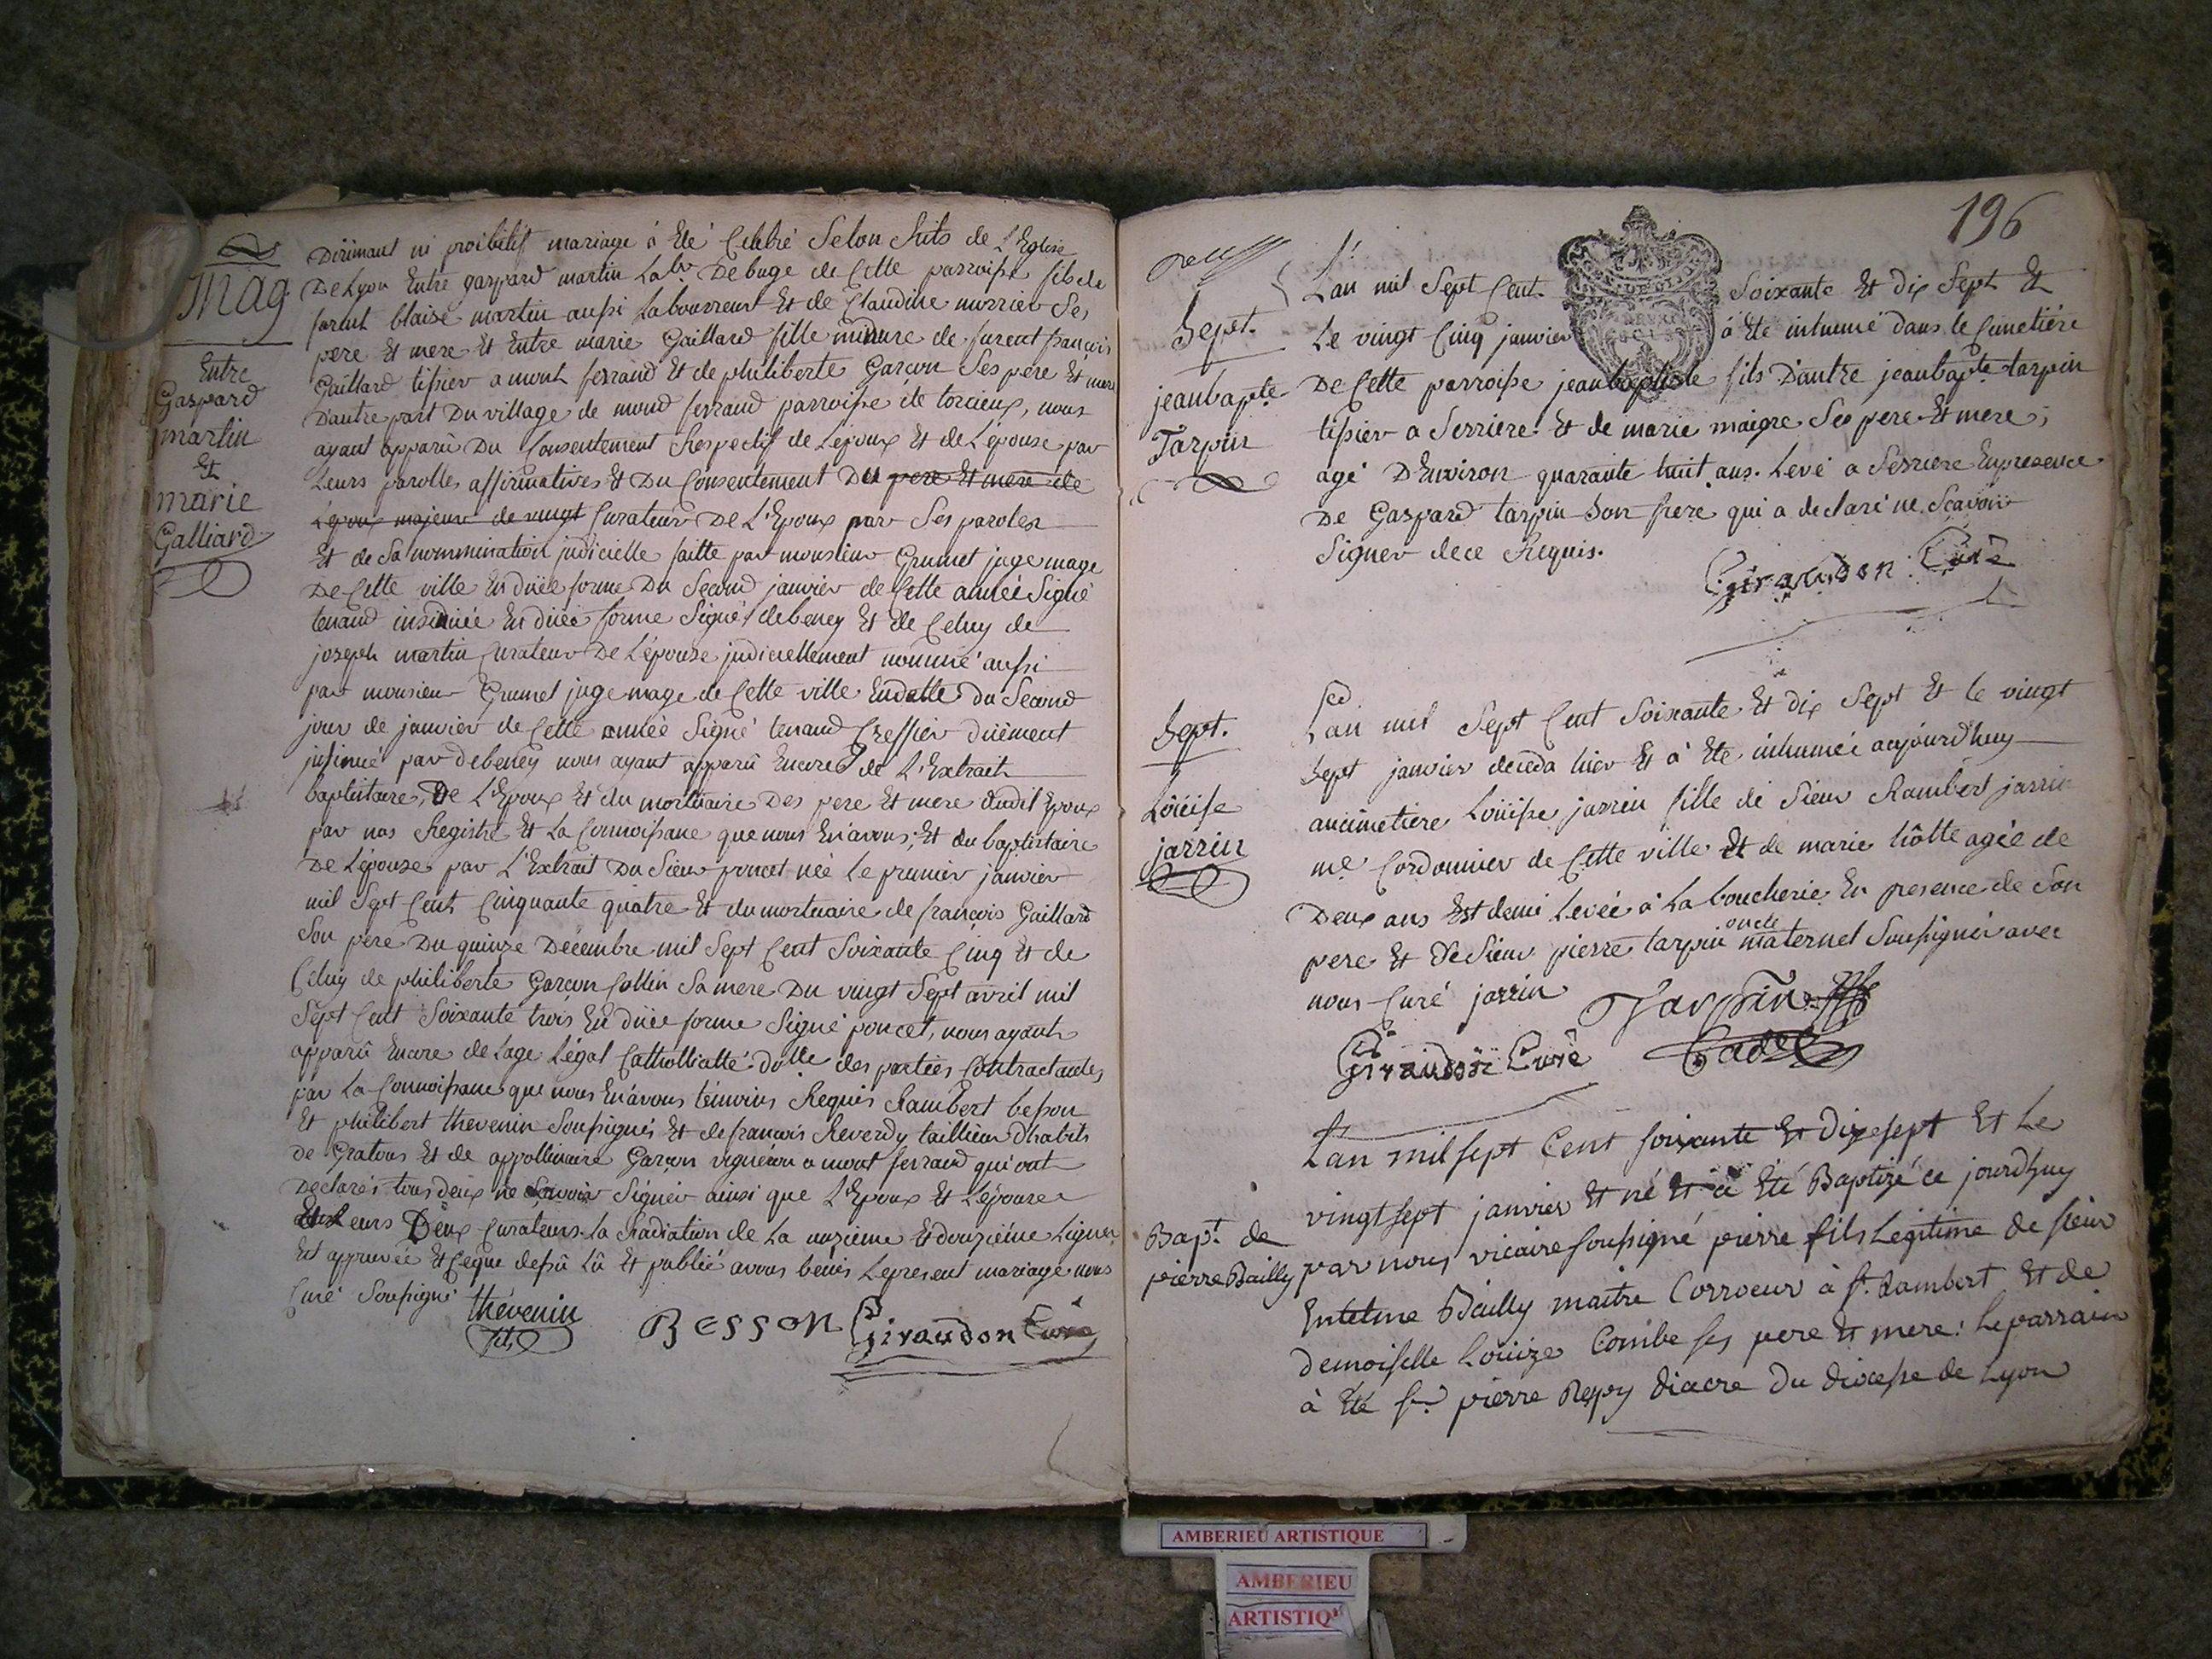 Mag
Entre
Gaspard
martin
Et
marie
Galliard
Dirimant ni proibitif mariage à été Celebré Selon Rits de L'Eglise
De Lyon Entre gaspard martin Labr. De buge de Cette parroisse fils de
furent blaise martin aussi Laboureur Et de Claudine morrier Ses
pere Et mere Et Entre marie Gaillard fille mineure de furent françois
Gaillard tissier a mont ferrand Et de philiberte Garçon Ses pere Et mere
D'autre part Du village de mond ferrand parroisse de torcieux, nous
ayant apparû Du Consentement Respectif de L'époux Et de L'épouse par
Leurs parolles affirmatives Et Du Consentement Des pere Et mere de
L'epoux majeur de vingt Curateur De L'Epoux par Ses paroles
Et de Sa nommination judicielle faitte par monsieur Grumet juge mage
De Cette ville En duëe forme Du Second janvier de Cette année Signé
tenand insinüée En duëe forme Signé debeney Et de Celuy de
joseph martin Curateur De L'épouse judiciellement nommé aussi
par monsieur Grumet juge mage de Cette ville En datte du Second
jour de janvier de Cette année Signé tenand Greffier düement
insinué par debeney nous ayant apparû Encore de L'Extrait
baptistaire, De L'Epoux Et du mortuaire Des pere Et mere dudit Epoux
par nos Registre Et La Connoissance que nous En avons; Et du baptistaire
De L'épouse par L'Extrait Du Sieur poncet née Le premier janvier
mil Sept Cent Cinquante quatre Et du mortuaire de françois Gaillard
Son pere Du quinze Decembre mil Sept Cent Soixante Cinq Et de
Celuy de philiberte Garçon Collin Sa mere Du vingt Sept avril mil
Sept Cent Soixante trois En duëe forme Signé poncet, nous ayant
apparû Encore de Lage Légal Catholicité des parties Contractantes
par La Connoissance que nous En avons témoins Requis Rambert besson
Et philibert thevenin Soussignés Et de françois Reverdy taillieur D'habits
de Gratoux Et de appollinaire Garçon vigneron a mont ferrand qui ont
Declarés tous deux ne Scavoir Signer ainsi que L'Epoux Et L'épouse
Et Leurs Deux Curateurs. La Radiation de La onzieme Et douzième Lignes
Est approuvée Et Ceque dessû Lû Et publié avons benis Le present mariage nous
Curé Soussigné
thévenin
fils
BESSON
Giraudon Curé
196
Sept.
jeanbapte
Tarpin
L'an mil Sept Cent Soixante Et dix Sept Et
Le vingt Cinq janvier à été inhumé dans le Cimetiére
De Cette parroisse jeanbaptiste fils D'autre jeanbapte tarpin
tissier a Serriere Et de marie maigre Ses pere Et mere,
agé D'Environ quarante huit ans. Levé a Serriere En presence
De Gaspard tarpin Son frere qui a declaré ne Scavoir
Signer de ce Requis.
Giraudon Curé
Sept.
Loüise
jarrin
L'an mil Sept Cent Soixante Et dix Sept Et le vingt
Sept janvier deceda hier Et à Eté inhumée aujourdhuy
au cimetiere Loüise jarrin fille de Sieur Rambert jarrin
me Cordonnier de Cette ville Et de marie hôtte agée de
Deux ans Est demi Levée à La boucherie En presence de Son
pere Et De Sieur pierre tarpin oncle maternel Soussignés avec
nous Curé jarrin
Tarpin
Giraudon Curé
Bapt. de
pierre Bailly
L'an mil sept Cent soixante Et dixesept Et Le
vingt sept janvier Et né Et à Eté Baptizé ce jourdhuy
par nous vicaire soussigné pierre fils Legitime de sieur
Entelme Bailly maitre Corroeur à St. Rambert Et de
demoiselle Loüize Combe ses pere Et mere: le parrain
à Eté Sr. pierre Repy diacre du diocesse de Lyon
AMBERIEU ARTISTIQUE
AMBERIEU
ARTISTIQ